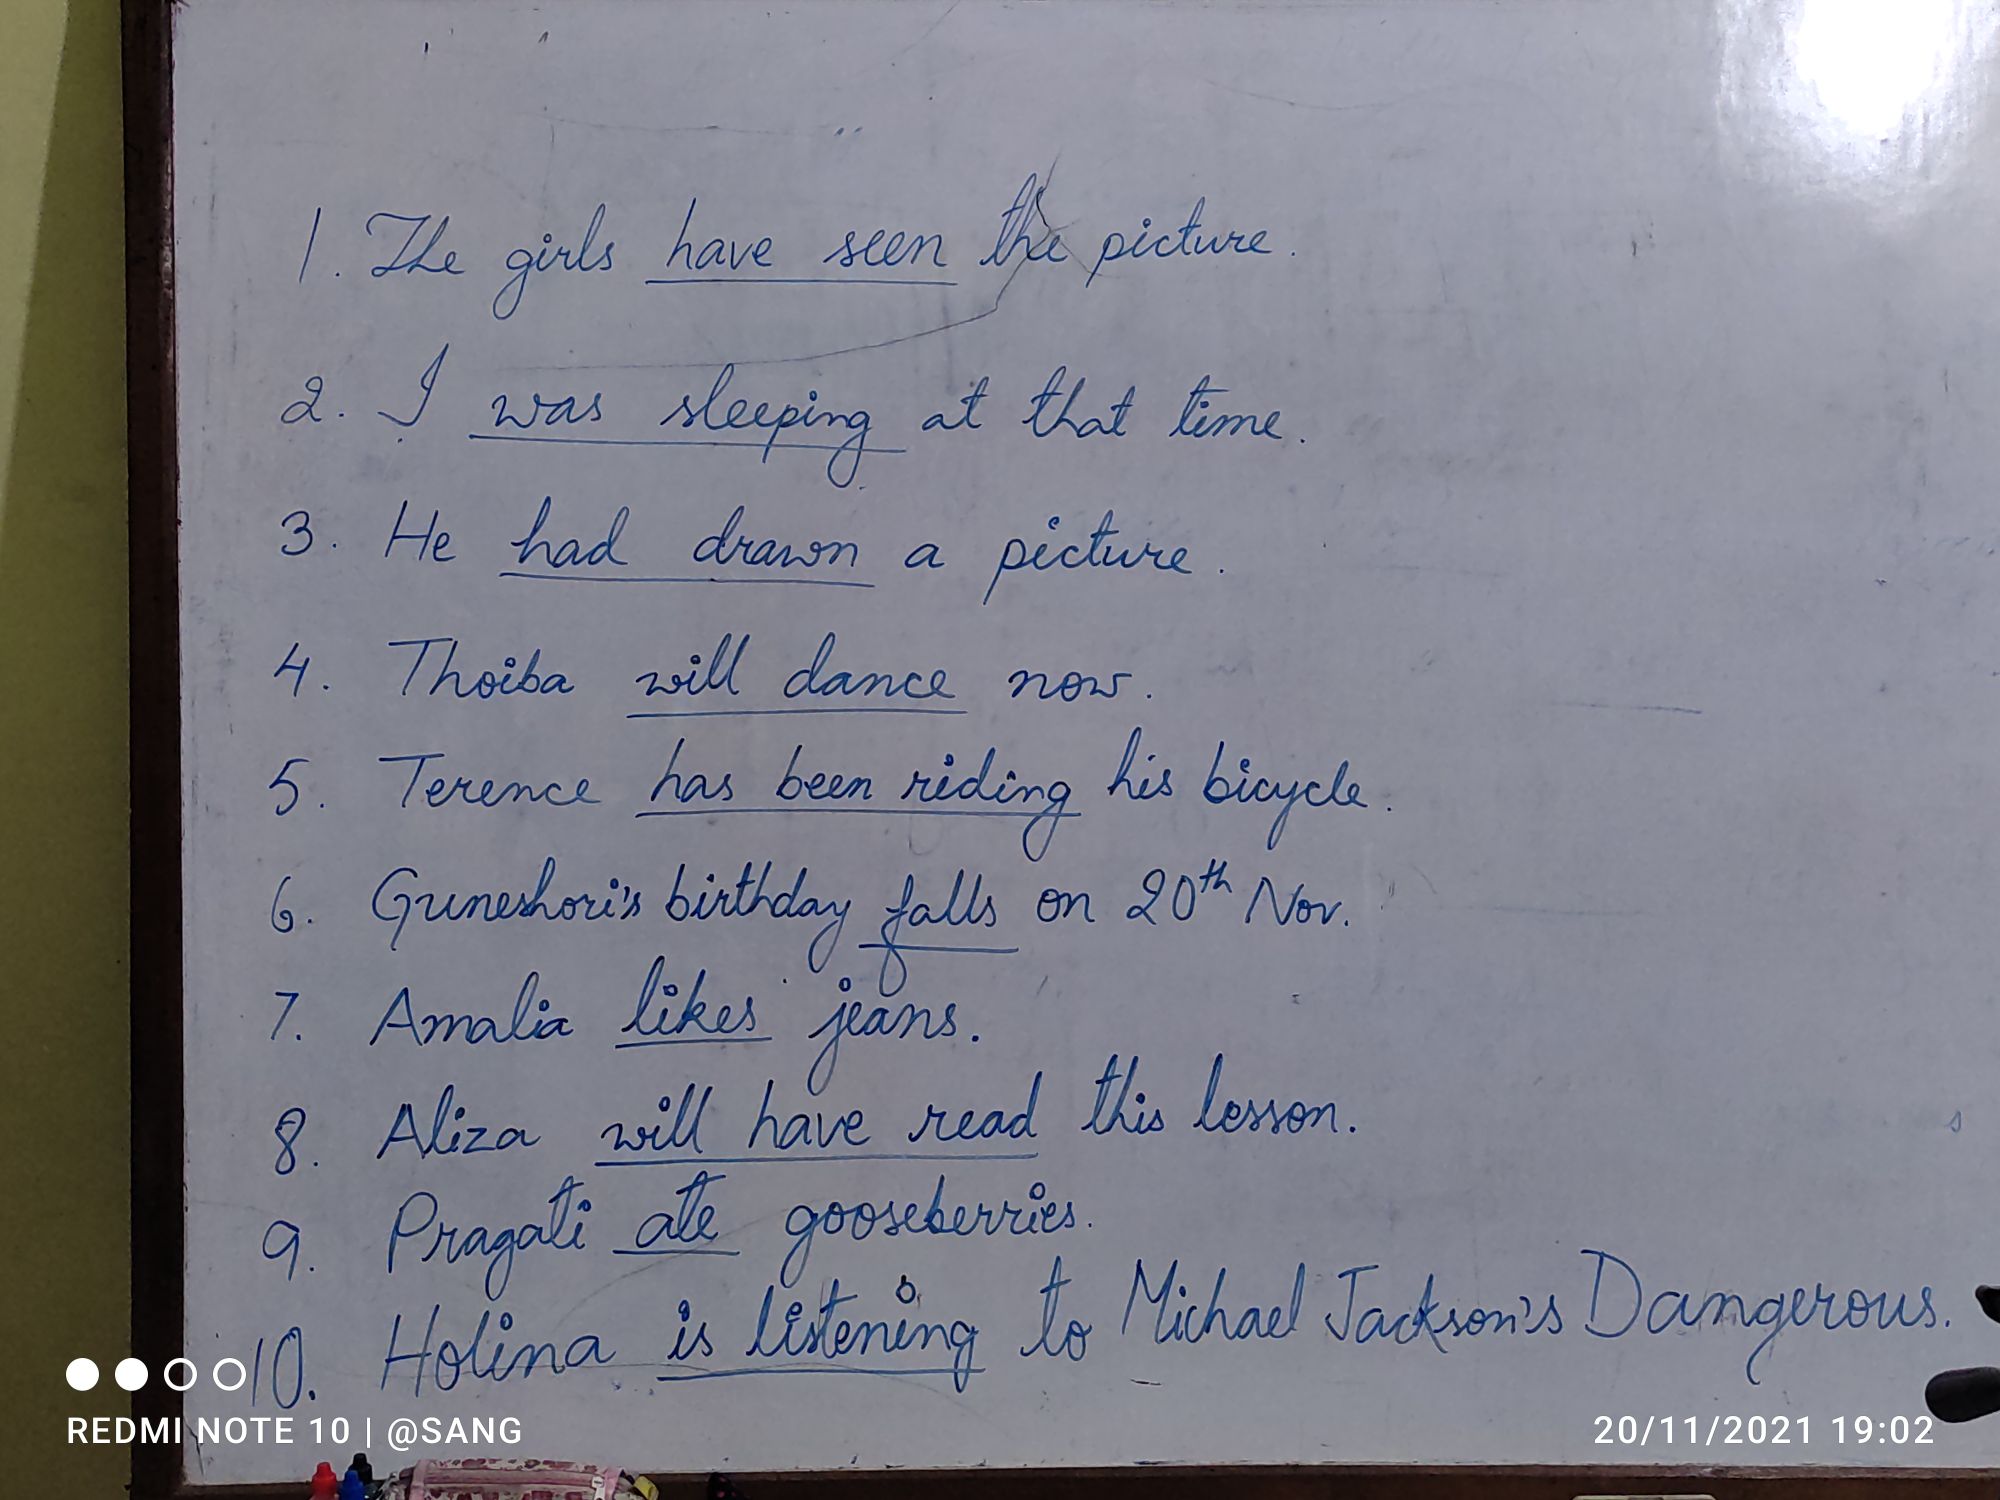 1. The girls have seen the picture.
2. I was sleeping at that time.
3. He had drawn a picture.
4. Thoiba will dance now.
5. Terence has been riding his bicycle.
6. Guneshori's birthday falls on 20th Nov.
7. Amalia likes jeans.
8. Aliza will have read this lesson.
9. Pragati ate gooseberries.
10. Holina is listening to Michael Jackson's Dangerous.
REDMI NOTE 10 | @SANG
20/11/2021 19:02